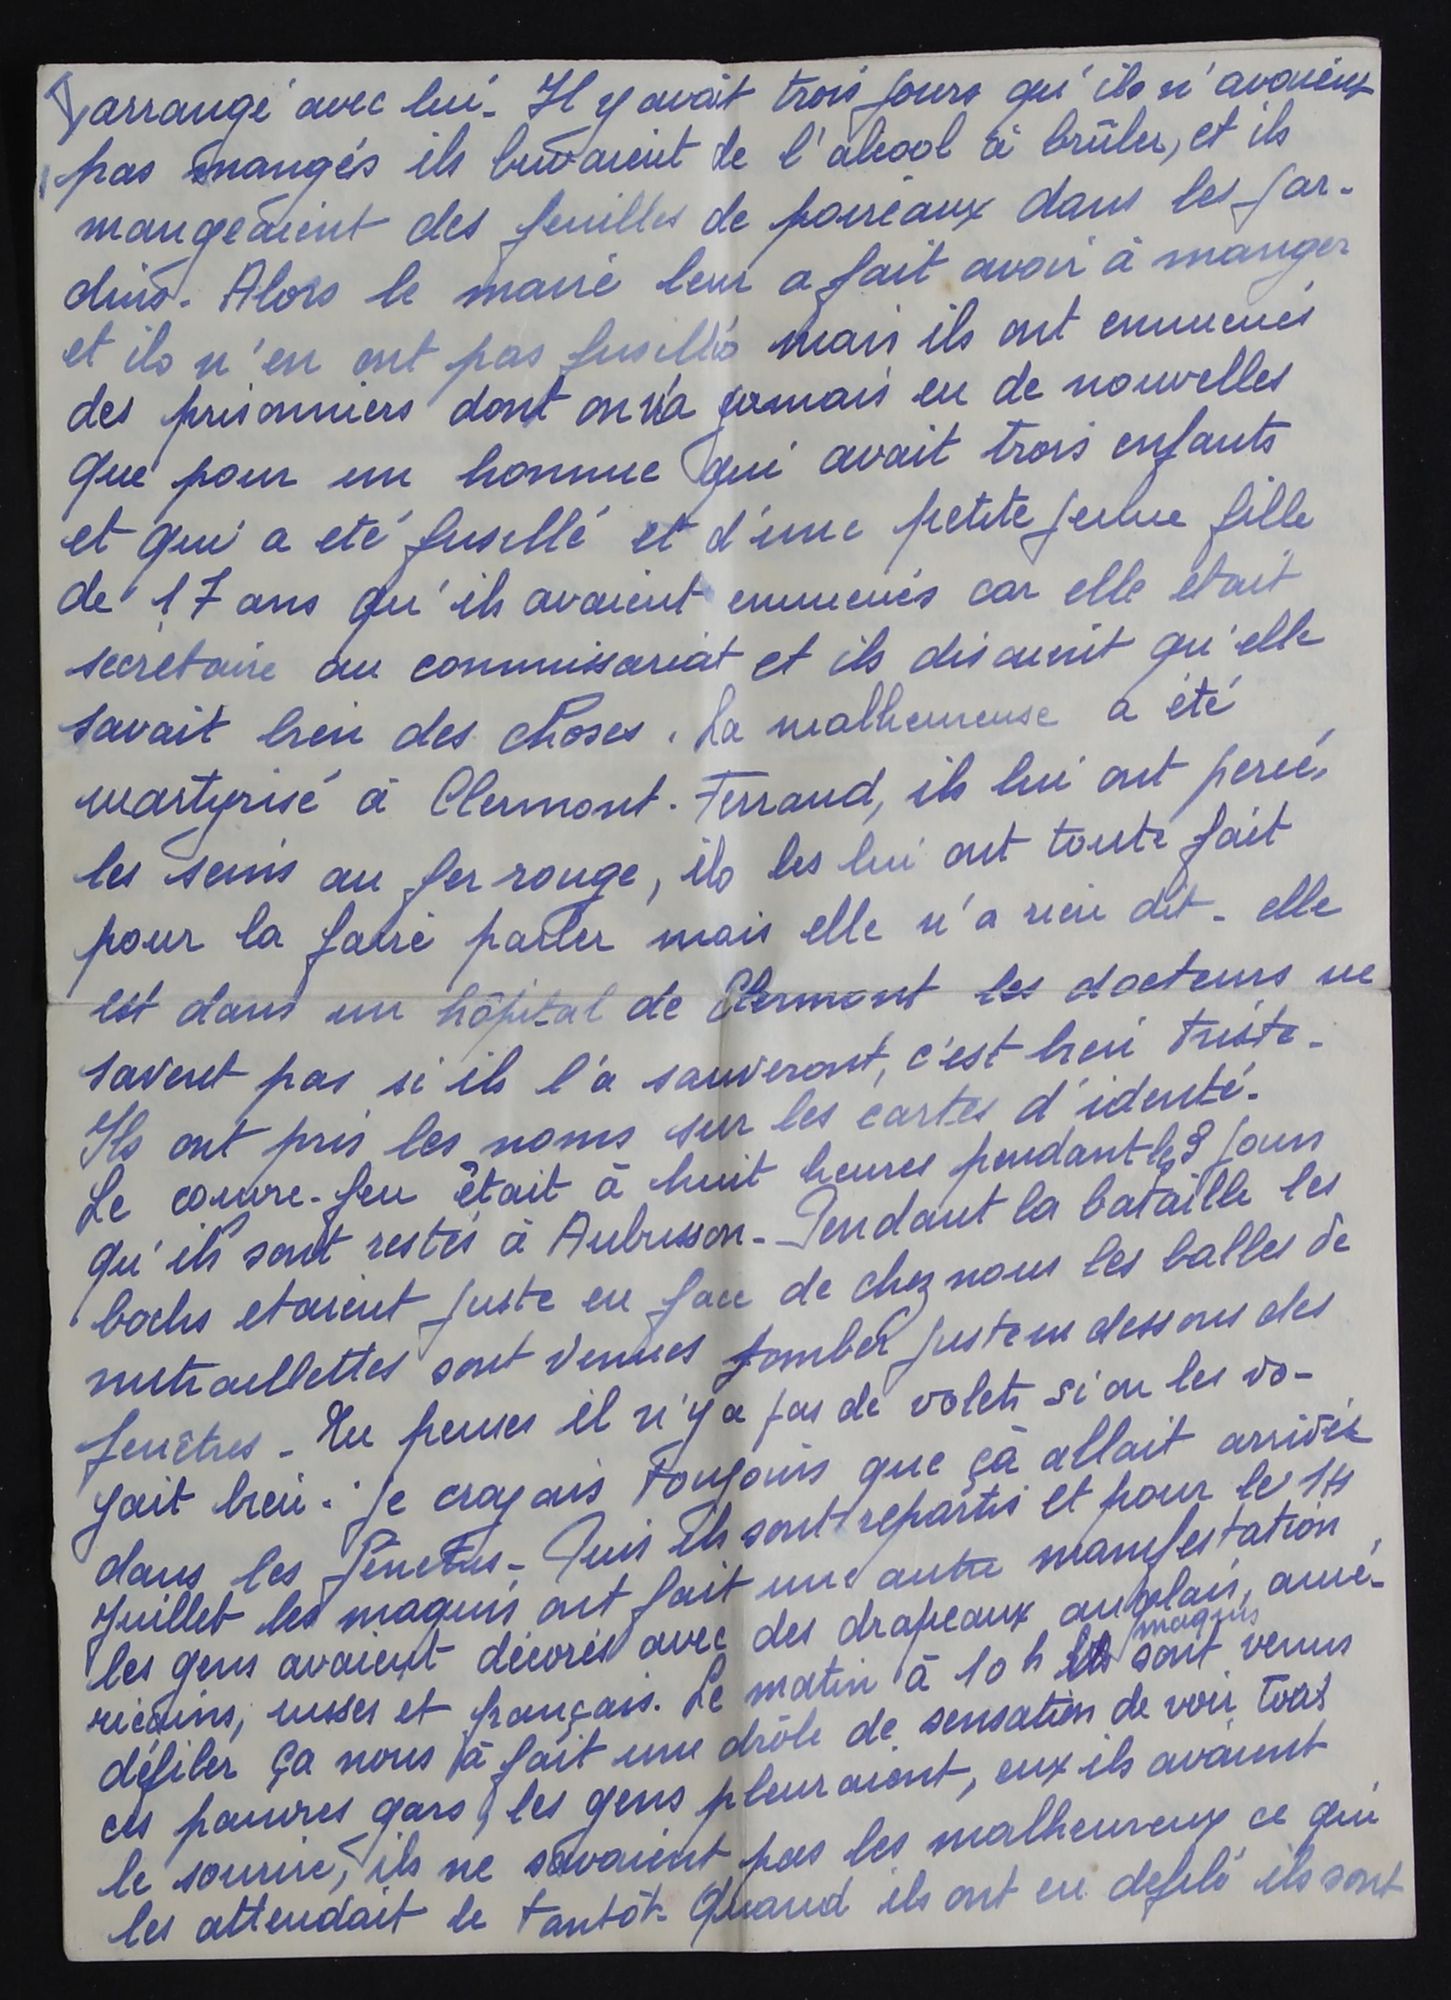 arrangé avec lui. Il y avait trois jours qu'ils n'avaient
pas mangés ils buvaient de l'alcool à brûler, et ils
mangeaient des feuilles de poireaux dans les jar-
dins. Alors le maire leur a fait avoir à manger
et ils n'en ont pas fusillés mais ils ont emmenés
des prisonniers dont on n'a jamais eu de nouvelles
que pour un homme qui avait trois enfants
et qui a eté fusillé et d'une petite jeune fille
de 17 ans qu'ils avaient emmenés car elle était
secrétaire au commissariat et ils disaient qu'elle
savait bien des choses. La malheureuse a été
martyrisé à Clermont-Ferrand, ils lui ont percés
les seins au fer rouge, ils les lui ont toute fait
pour la faire parler mais elle n'a rien dit - elle
est dans un hôpital de Clermont les docteurs ne
savent pas si ils l'a sauveront, c'est bien triste.
Ils ont pris les noms sur les cartes d'identé.
Le couvre-feu était à huit heures pendant les 9 jours
qu'ils sont restés à Aubusson. Pendant la bataille les
bochs etaient juste en face de chez nous les balles de
mitraillettes sont venues tomber juste au dessous des
fenêtres - Tu penses il n'y a pas de volets si on les vo-
yait bien. je croyais toujours que çà allait arrivés
dans les fenetres - Puis ils sont repartis et pour le 14
Juillet les maquis ont fait une autre manifestation
les gens avaient décorés avec des drapeaux anglais, amé-
ricains, russes et français. Le matin à 10 h les maquis sont venus
défiler ça nous à fait une drôle de sensation de voir tous
ces pauvres gars, les gens pleuraient, eux ils avaient
le sourire, ils ne savaient pas les malheureux ce qui
les attendait le tantôt. Quand ils ont eu defilé ils sont